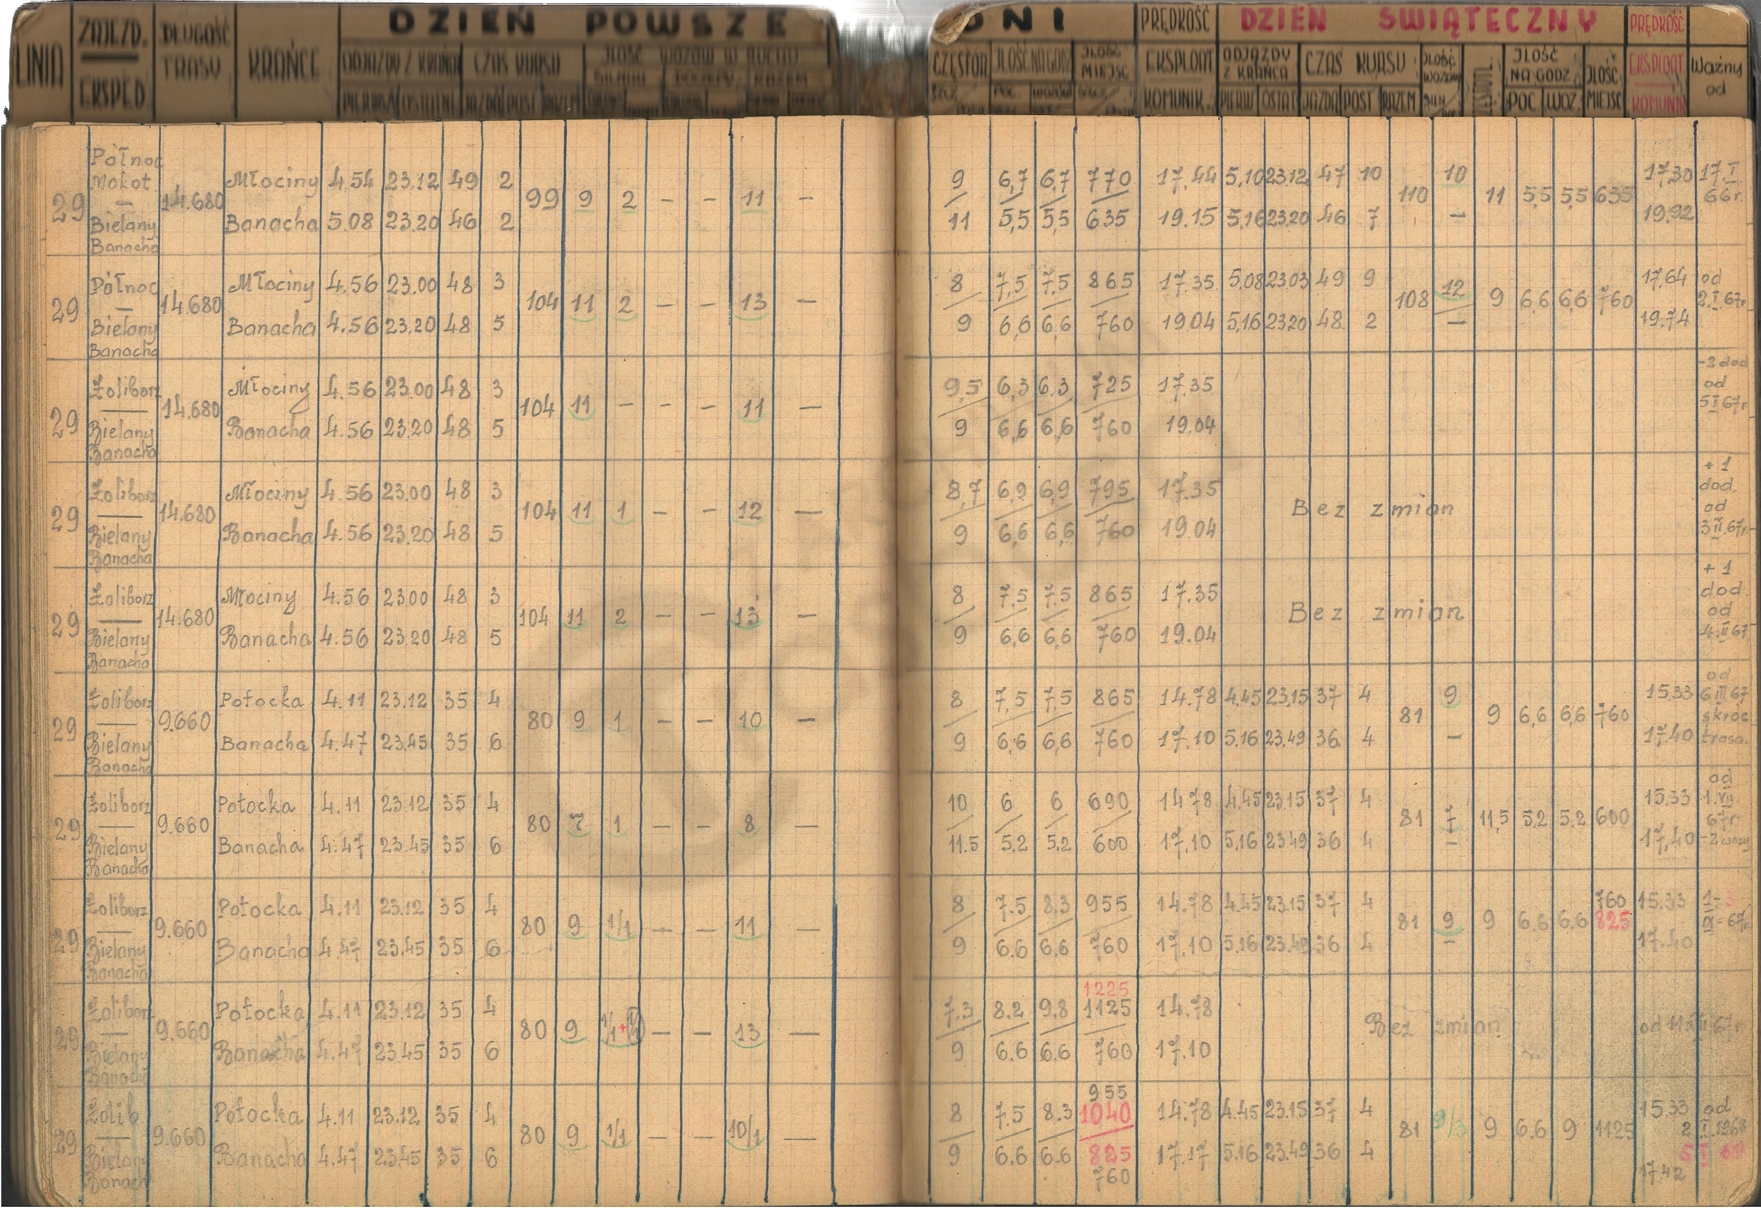 DZIEŃ POWSZEDNI PRĘDKOŚĆ DZIEŃ ŚWIĄTECZNY PRĘDKOŚĆ
LINIA ZAJEZD. DŁUGOŚĆ TRASY KRAŃCE ODJAZDY Z KRAŃCA CZAS KURSU ILOŚĆ WOZÓW W RUCHU ILOŚĆ NA GODZ ILOŚĆ MIEJSC EKSPLOAT ODJAZDY Z KRAŃCA CZAS KURSU ILOŚĆ WOZÓW ILOŚĆ NA GODZ ILOŚĆ MIEJSC EKSPLOAT Ważny od
EKSPED. JAZDA POST RAZEM POC. WOZÓW KOMUNIK. PIERW OSTAT JAZDA POST RAZEM POC WOZ. KOMUNIK
Północ
Mokot. Młociny 4.54 23.12 49 2 9 6,7 6,7 770 17.44 5,10 23.12 47 10 10 17.30 17.I
29 — 14.680 99 9 2 — — 11 — 110 11 5,5 5,5 635 66r.
Bielany Banacha 5.08 23.20 46 2 11 5,5 5,5 635 19.15 5,16 23.20 46 7 — 19,92
Banacha
Północ Młociny 4.56 23.00 48 3 8 7,5 7,5 865 17.35 5,08 23.03 49 9 12 17.64 od
29 — 14.680 104 11 2 — — 13 — 108 9 6,6 6,6 760 2.I.67r.
Bielany Banacha 4.56 23.20 48 5 9 6,6 6,6 760 19.04 5,16 23.20 48 2 — 19.74
Banacha
-2 dod
Żoliborz Młociny 4.56 23.00 48 3 9,5 6,3 6.3 725 17.35 od
29 — 14.680 104 11 — — — 11 — 5 I 67r
Bielany Banacha 4.56 23.20 48 5 9 6,6 6,6 760 19.04
Banacha
+ 1
Żoliborz Młociny 4.56 23.00 48 3 8,7 6,9 6,9 795 17.35 dod.
29 — 14.680 104 11 1 — — 12 — Bez zmian od
Bielany Banacha 4.56 23.20 48 5 9 6,6 6,6 760 19.04 3 II.67r.
Banacha
+ 1
Żoliborz Młociny 4.56 23.00 48 3 8 7,5 7,5 865 17.35 dod.
29 — 14.680 104 11 2 — — 13 — Bez zmian od
Bielany Banacha 4.56 23.20 48 5 9 6,6 6,6 760 19.04 4.II 67
Banacha
od
Żoliborz Potocka 4.11 23.12 35 4 8 7,5 7,5 865 14.78 4.45 23.15 37 4 9 15.33 6 III 67
29 — 9.660 80 9 1 — — 10 — 81 9 6,6 6,6 760 skróc.
Bielany Banacha 4.47 23.45 35 6 9 6,6 6,6 760 17.10 5.16 23.49 36 4 — 17.40 trasa.
Banacha
od
Żoliborz Potocka 4.11 23.12 35 4 10 6 6 690 14.78 4.45 23.15 37 4 15.33 1.VII
29 — 9.660 80 7 1 — — 8 — 81 7 11,5 5,2 5,2 600 67r
Bielany Banacha 4.47 23.45 35 6 11.5 5,2 5,2 600 17,10 5,16 23.49 36 4 — 17,40 -2 wozy
Banacha
Żoliborz Potocka 4.11 23.12 35 4 8 7.5 8,3 955 14.78 4.45 23.15 37 4 760 15.33
29 — 9.660 80 9 1/1 — — 11 — 81 9 9 6.6 6.6 825
Bielany Banacha 4.47 23.45 35 6 9 6.6 6.6 760 17,10 5.16 23.49 36 4 — 17.40
Banacha
1225
Żoliborz Potocka 4.11 23.12 35 4 7.3 8.2 9,8 1125 14.78
29 — 9.660 80 9 1/1 — — 13 — Bez zmian
Bielany Banacha 4.47 23.45 35 6 9 6.6 6.6 760 17.10
Banacha
955
Żolib Potocka 4.11 23.12 35 4 8 7.5 8.3 1040 14.78 4.45 23.15 37 4 15.33 od
29 — 9.660 80 9 1/1 — — 10/1 — 81 9/3 9 6.6 9 1125 2 I.1968
Bielany Banacha 4.47 23.45 35 6 9 6.6 6.6 825 17.17 5.16 23.49 36 4
Banach 760 1742